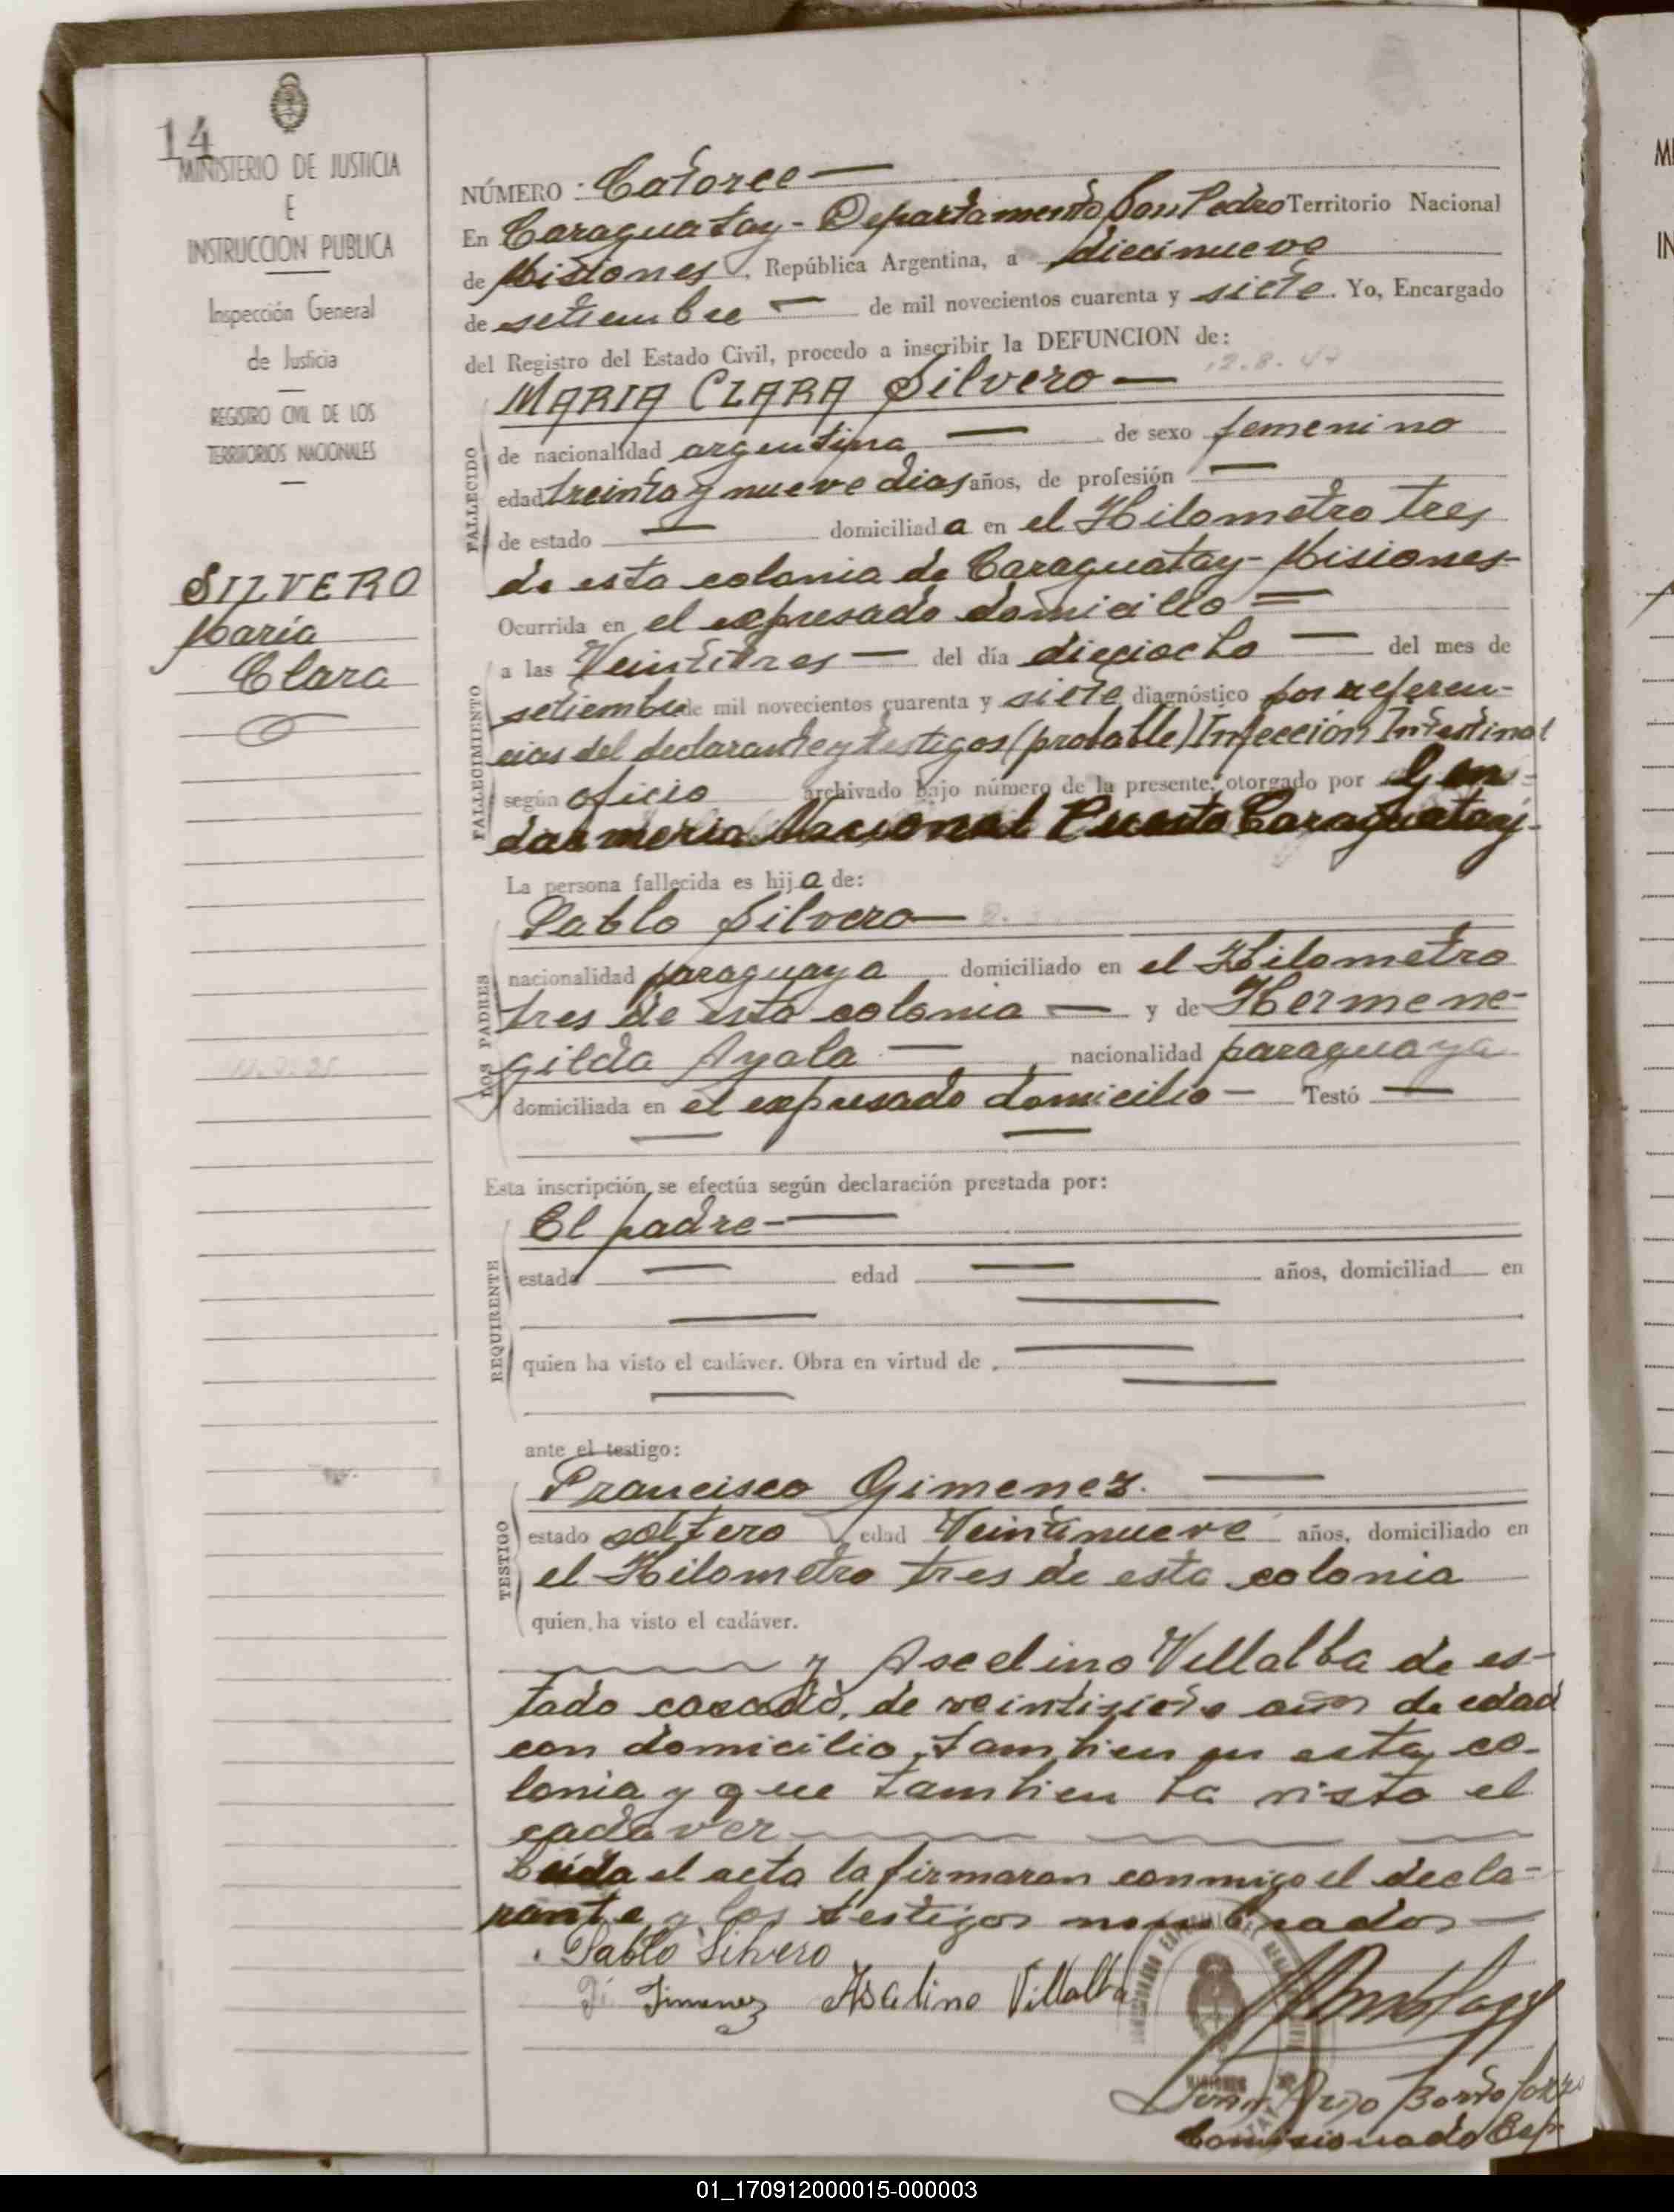 14
MINISTERIO DE JUSTICIA
E
INSTRUCCION PUBLICA
Inspección General
de Justicia
REGISTRO CIVIL DE LOS
TERRITORIOS NACIONALES
SILVERO
Maria
Clara
NÚMERO: Catorce —
En Caraguatay - Departamento San Pedro Territorio Nacional
de Misiones, República Argentina, a diecinueve
de setiembre — de mil novecientos cuarenta y siete. Yo, Encargado
del Registro del Estado Civil, procedo a inscribir la DEFUNCION de:
12.8.47
MARIA CLARA Silvero —
FALLECIDO
de nacionalidad argentina — de sexo femenino
edad treinta y nueve dias años, de profesión —
de estado — domiciliada en el Kilometro tres
de esta colonia de Caraguatay - Misiones -
FALLECIMIENTO
Ocurrida en el expresado domicilio =
a las Veintitres — del día dieciocho — del mes de
setiembre de mil novecientos cuarenta y siete diagnóstico por referen-
cias del declarante y testigos (probable) Infección Intestinal
según oficio archivado bajo número de la presente, otorgado por Gen-
darmeria Nacional Puerto Caraguatay.
La persona fallecida es hija de:
LOS PADRES
Pablo Silvero —
nacionalidad paraguaya domiciliado en el Kilometro
tres de esta colonia — y de Hermene-
gilda Ayala — nacionalidad paraguaya
domiciliada en el expresado domicilio — Testó —
Esta inscripción se efectúa según declaración prestada por:
REQUIRENTE
El padre —
estado — edad — años, domiciliad en
quien ha visto el cadáver. Obra en virtud de
ante el testigo:
TESTIGO
Francisco Gimenez. —
estado soltero edad Veintinueve años, domiciliado en
el Kilometro tres de esta colonia
quien ha visto el cadáver.
y Ascelino Villalba de es-
tado casado, de veintisiete años de edad
con domicilio, tambien en esta co-
lonia y que tambien ha visto el
cadaver
Leida el acta la firmaran conmigo el decla-
rante y los testigos nombrados —
Pablo Silvero
Jimenez Asalino Villalba
MISIONES
Comisionado Esp
01_170912000015-000003